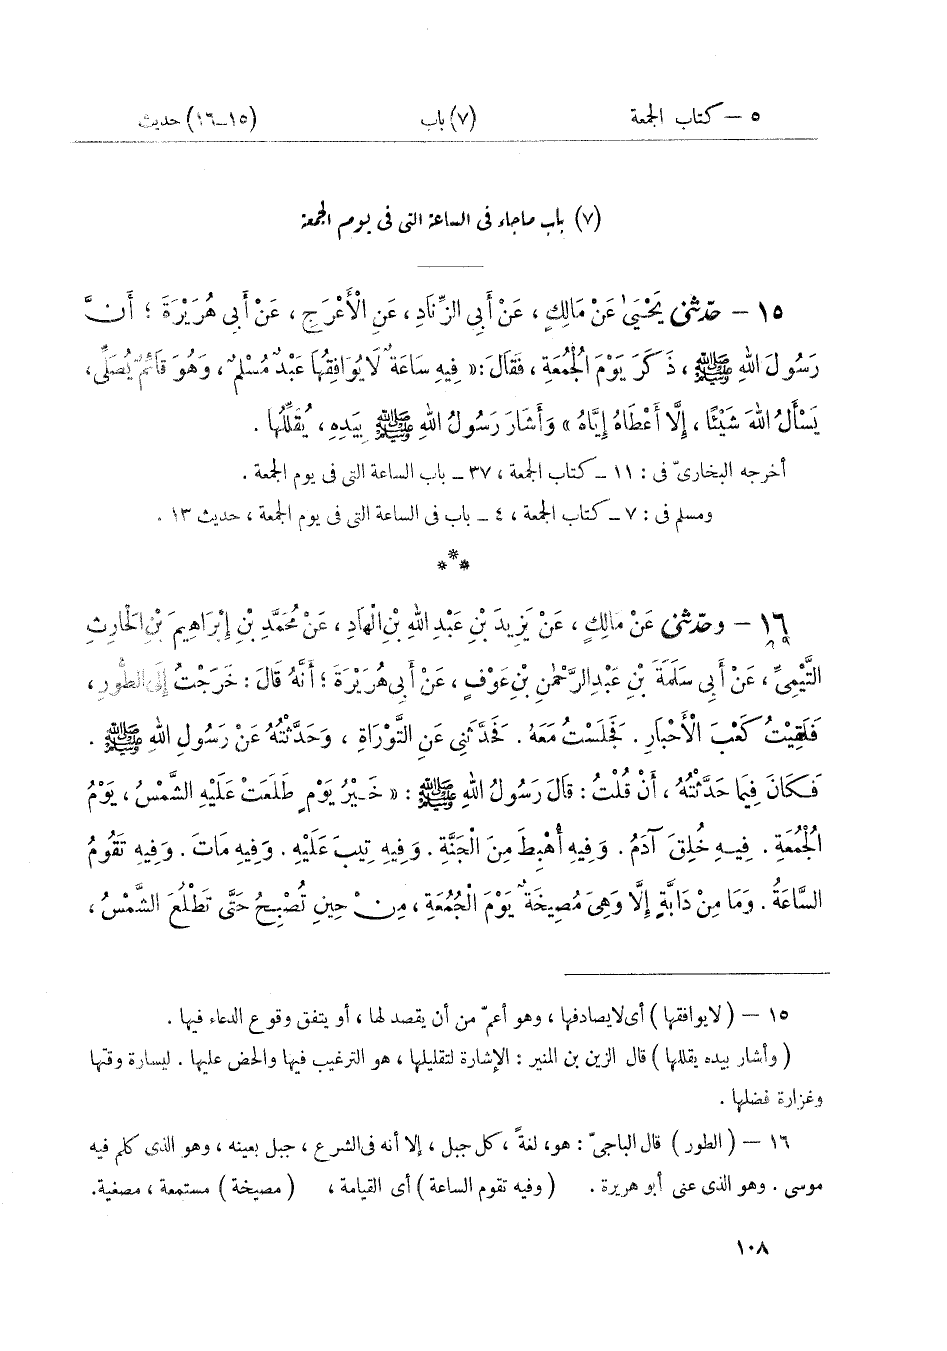 ٥ – كتاب الجمعة (٧) باب (١٥–١٦) حديث
(٧) باب ماجاء فى الساعة التى فى يوم الجمعة
١٥ – حدّثنى يَحْيَىٰ عَنْ مَالِكٍ ، عَنْ أَبِي الزِّنَادِ ، عَنِ الْأَعْرَجِ ، عَنْ أَبِي هُرَيْرَةَ ؛ أَنَّ
رَسُولَ اللهِ ﷺ ، ذَكَرَ يَوْمَ الْجُمُعَةِ ، فَقَالَ : « فِيهِ سَاعَةٌ لَا يُوَافِقُهَا عَبْدٌ مُسْلِمٌ ، وَهُوَ قَائمٌ يُصَلِّى ،
يَسْأَلُ اللهَ شَيْئًا ، إِلَّا أَعْطَاهُ إِيَّاهُ » وَأَشَارَ رَسُولُ اللهِ ﷺ بِيَدِهِ ، يُقَلِّلُهَا .
أخرجه البخارىّ فى : ١١ – كتاب الجمعة ، ٣٧ – باب الساعة التى فى يوم الجمعة .
ومسلم فى : ٧ – كتاب الجمعة ، ٤ – باب فى الساعة التى فى يوم الجمعة ، حديث ١٣ .
***
١٦ – وحدّثنى عَنْ مَالِكٍ ، عَنْ يَزِيدَ بْنِ عَبْدِ اللهِ بْنِ الْهَادِ ، عَنْ مُحَمَّدِ بْنِ إِبْرَاهِيمَ بْنِ الْحَارِثِ
التَّيْمِىِّ ، عَنْ أَبِي سَلَمَةَ بْنِ عَبْدِ الرَّحْمٰنِ بْنِ عَوْفٍ ، عَنْ أَبِي هُرَيْرَةَ ؛ أَنَّهُ قَالَ : خَرَجْتُ إِلَى الطُّورِ ،
فَلَقِيْتُ كَعْبَ الْأَحْبَارِ . فَجَلَسْتُ مَعَهُ . فَحَدَّثَنِى عَنِ التَّوْرَاةِ ، وَحَدَّثْتُهُ عَنْ رَسُولِ اللهِ ﷺ .
فَكَانَ فِيمَا حَدَّثْتُهُ ، أَنْ قُلْتُ : قَالَ رَسُولُ اللهِ ﷺ : « خَيْرُ يَوْمٍ طَلَعَتْ عَلَيْهِ الشَّمْسُ ، يَوْمُ
الْجُمُعَةِ . فِيهِ خُلِقَ آدَمُ . وَفِيهِ أُهْبِطَ مِنَ الْجَنَّةِ . وَفِيهِ تِيبَ عَلَيْهِ . وَفِيهِ مَاتَ . وَفِيهِ تَقُومُ
السَّاعَةُ . وَمَا مِنْ دَابَّةٍ إِلَّا وَهِىَ مُصِيخَةٌ يَوْمَ الْجُمُعَةِ ، مِنْ حِينِ تُصْبِحُ حَتَّى تَطْلُعَ الشَّمْسُ ،
١٥ – ( لايوافقها ) أى لايصادفها ، وهو أعمّ من أن يقصد لها ، أو يتفق وقوع الدعاء فيها .
( وأشار بيده يقللها ) قال الزين بن المنير : الإشارة لتقليلها ، هو الترغيب فيها والحض عليها . ليسارة وقتها
وغزارة فضلها .
١٦ – ( الطور ) قال الباجىّ : هو، لغةً ، كل جبل ، إلا أنه فى الشرع ، جبل بعينه ، وهو الذى كلم فيه
موسى . وهو الذى عنى أبو هريرة . ( وفيه تقوم الساعة ) أى القيامة ، ( مصيخة ) مستمعة ، مصغية.
١٠٨